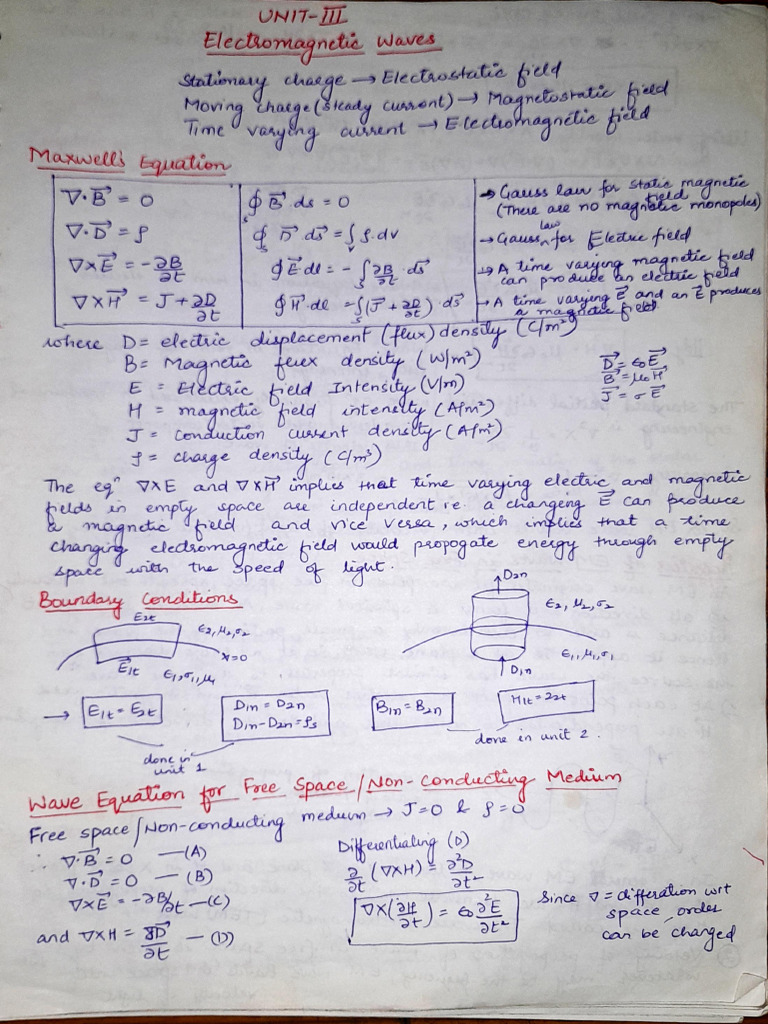 UNIT-III
Electromagnetic Waves
Stationary charge → Electrostatic field
Moving charge (steady current) → Magnetostatic field
Time varying current → Electromagnetic field
Maxwell's Equation
∇·B⃗ = 0 ∮ B⃗.ds = 0 → Gauss law for static magnetic field (There are no magnetic monopoles)
∇·D⃗ = ρ ∮ₛ D⃗ ds⃗ = ∫ᵥ ρ.dv → Gauss law for Electric field
∇×E⃗ = -∂B/∂t ∮E⃗dl = -∫ₛ ∂B/∂t · ds⃗ → A time varying magnetic field can produce an electric field
∇×H⃗ = J + ∂D/∂t ∮H⃗·dl = ∫ₛ(J⃗ + ∂D/∂t)·ds⃗ → A time varying E⃗ and an E⃗ produces a magnetic field
where D = electric displacement (flux) density (C/m²)
B = Magnetic flux density (W/m²)
E = Electric field Intensity (V/m)
H = magnetic field intensity (A/m²)
J = conduction current density (A/m²)
ρ = charge density (C/m³)
D⃗ = ϵ₀E⃗
B⃗ = μ₀H⃗
J⃗ = σE⃗
The eqⁿ ∇×E and ∇×H⃗ implies that time varying electric and magnetic
fields in empty space are independent i.e. a changeing E⃗ can produce
a magnetic field and vice versa, which implies that a time
changing electromagnetic field would propogate energy through empty
space with the speed of light.
Boundary Conditions
E2t
ϵ2, μ2, σ2
x=0
E⃗1t
ϵ1, σ1, μ1
D2n
ϵ2, μ2, σ2
ϵ1, μ1, σ1
D1n
→ E1t = E2t
D1n = D2n
D1n-D2n = ρs
B1n = B2n
H1t = 22t
done in unit 1
done in unit 2.
Wave Equation for Free Space / Non-Conducting Medium
Free space / Non-conducting medium → J=0 & ρ=0
∴ ∇·B⃗ = 0 —(A)
∇·D⃗ = 0 —(B)
∇×E⃗ = -∂B/∂t —(C)
and ∇×H = ∂D⃗/∂t —(D)
Differentialing (D)
∂/∂t (∇×H) = ∂²D/∂t²
∇×(∂H/∂t) = ϵ₀ ∂²E/∂t²
Since ∇ = differation wrt
space, order
can be changed